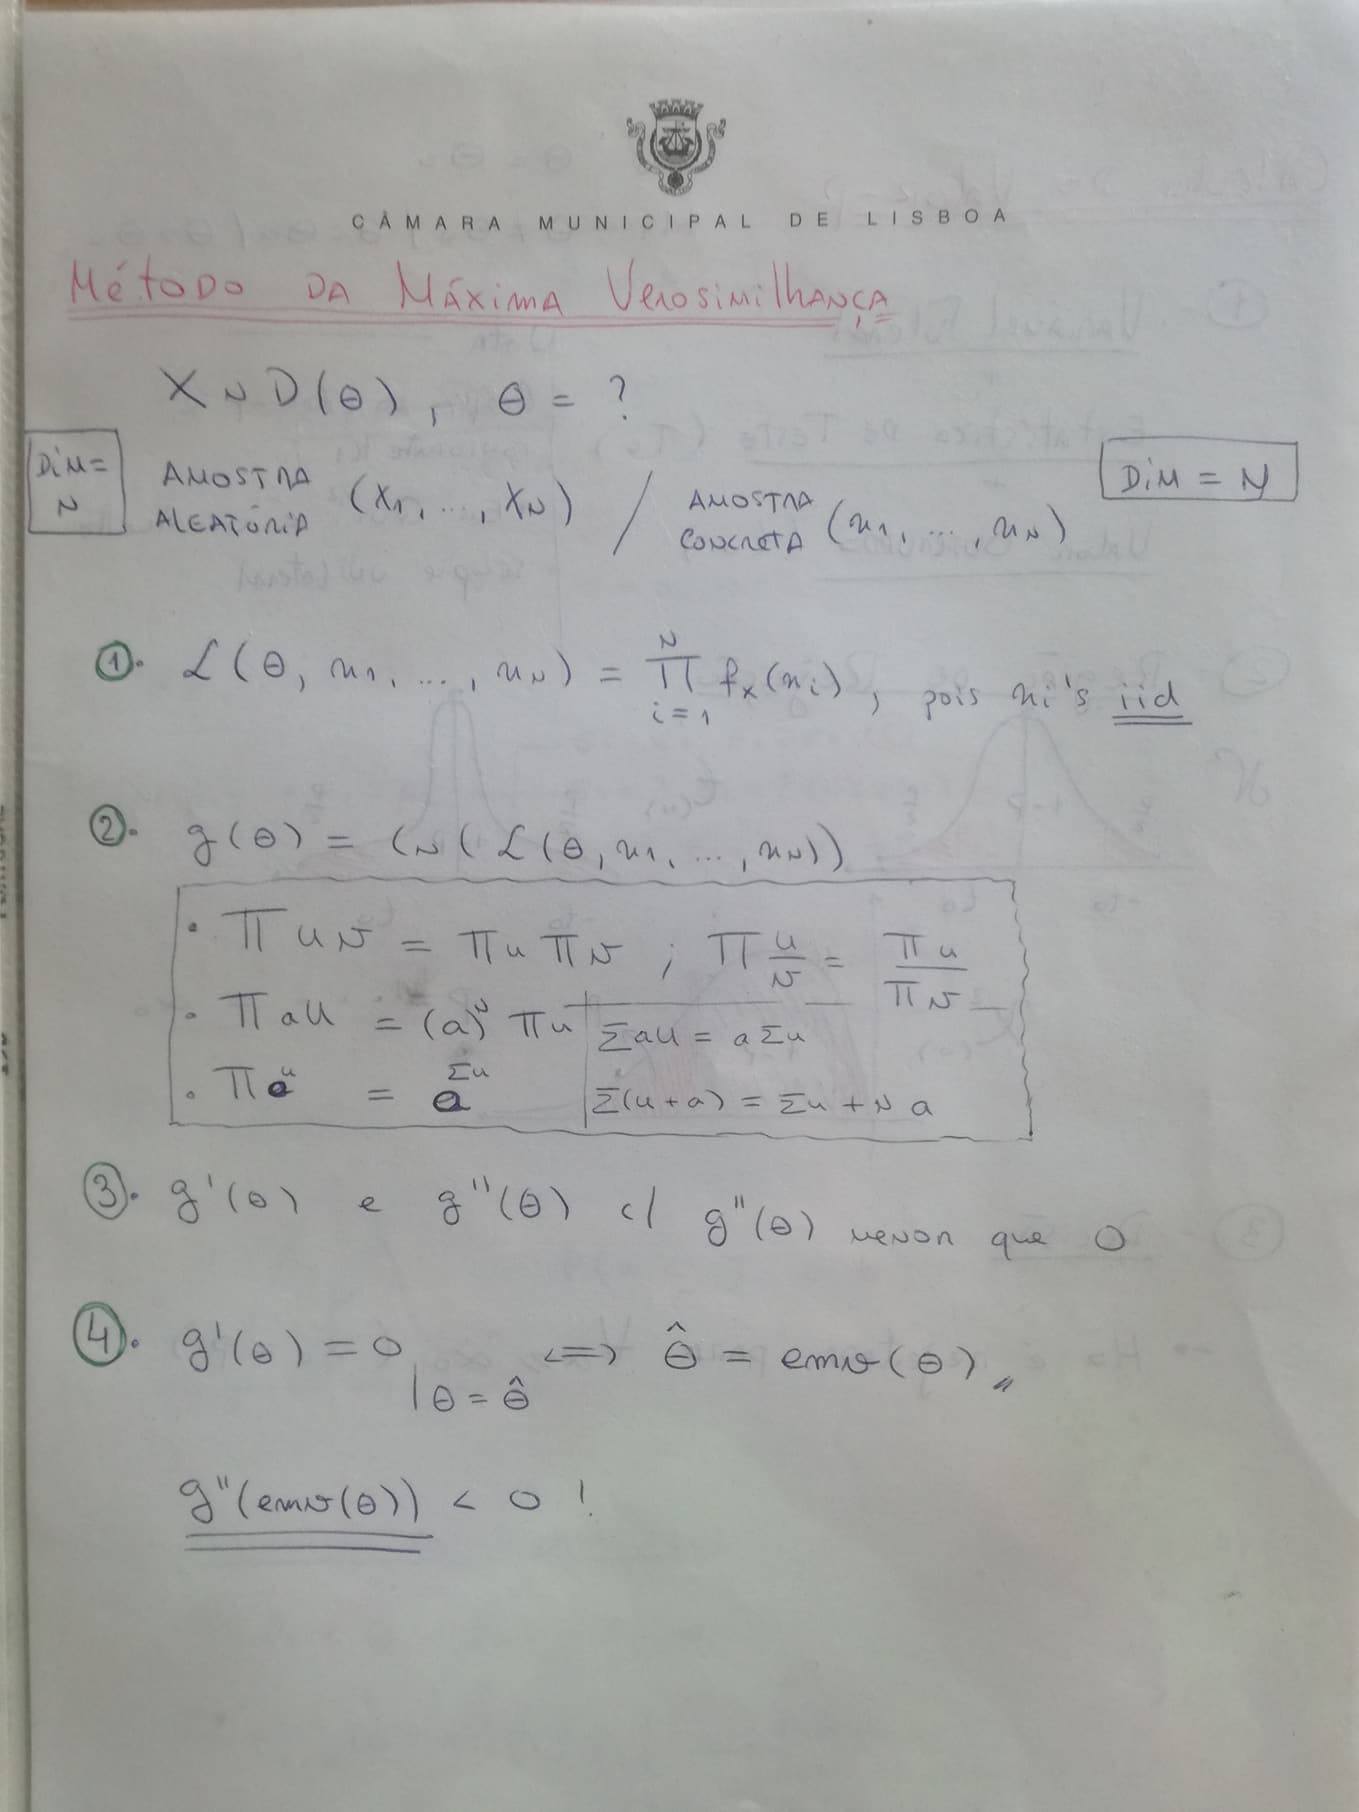 CÂMARA MUNICIPAL DE LISBOA
Método da Máxima Verosimilhança
X ~ D(θ), θ = ?
Dim = N
Amostra Aleatória (X1, ..., XN) / Amostra Concreta (x1, ..., xN)
Dim = N
①. L(θ, x1, ..., xN) = ∏_{i=1}^{N} fx(xi), pois xi's iid
②. g(θ) = LN(L(θ, x1, ..., xN))
• ∏ u v = ∏u ∏v ; ∏ u/v = ∏u / ∏v
• ∏ a u = (a)^N ∏u
Σ a u = a Σu
• ∏ a^u = a^{Σu}
Σ(u + a) = Σu + N a
③. g'(θ) e g''(θ) c/ g''(θ) menor que 0
④. g'(θ) = 0 |θ = θ̂ <=> θ̂ = emv(θ) //
g''(emv(θ)) < 0 !